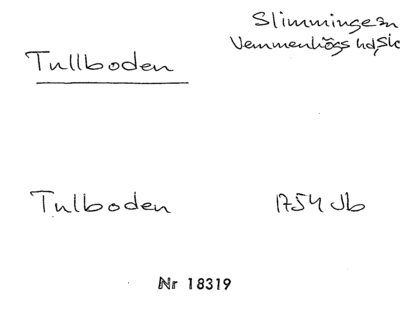 Slimminge sn
Vemmenhögs hd, Sk
Tullboden
Tulboden 1754 Jb
Nr 18319